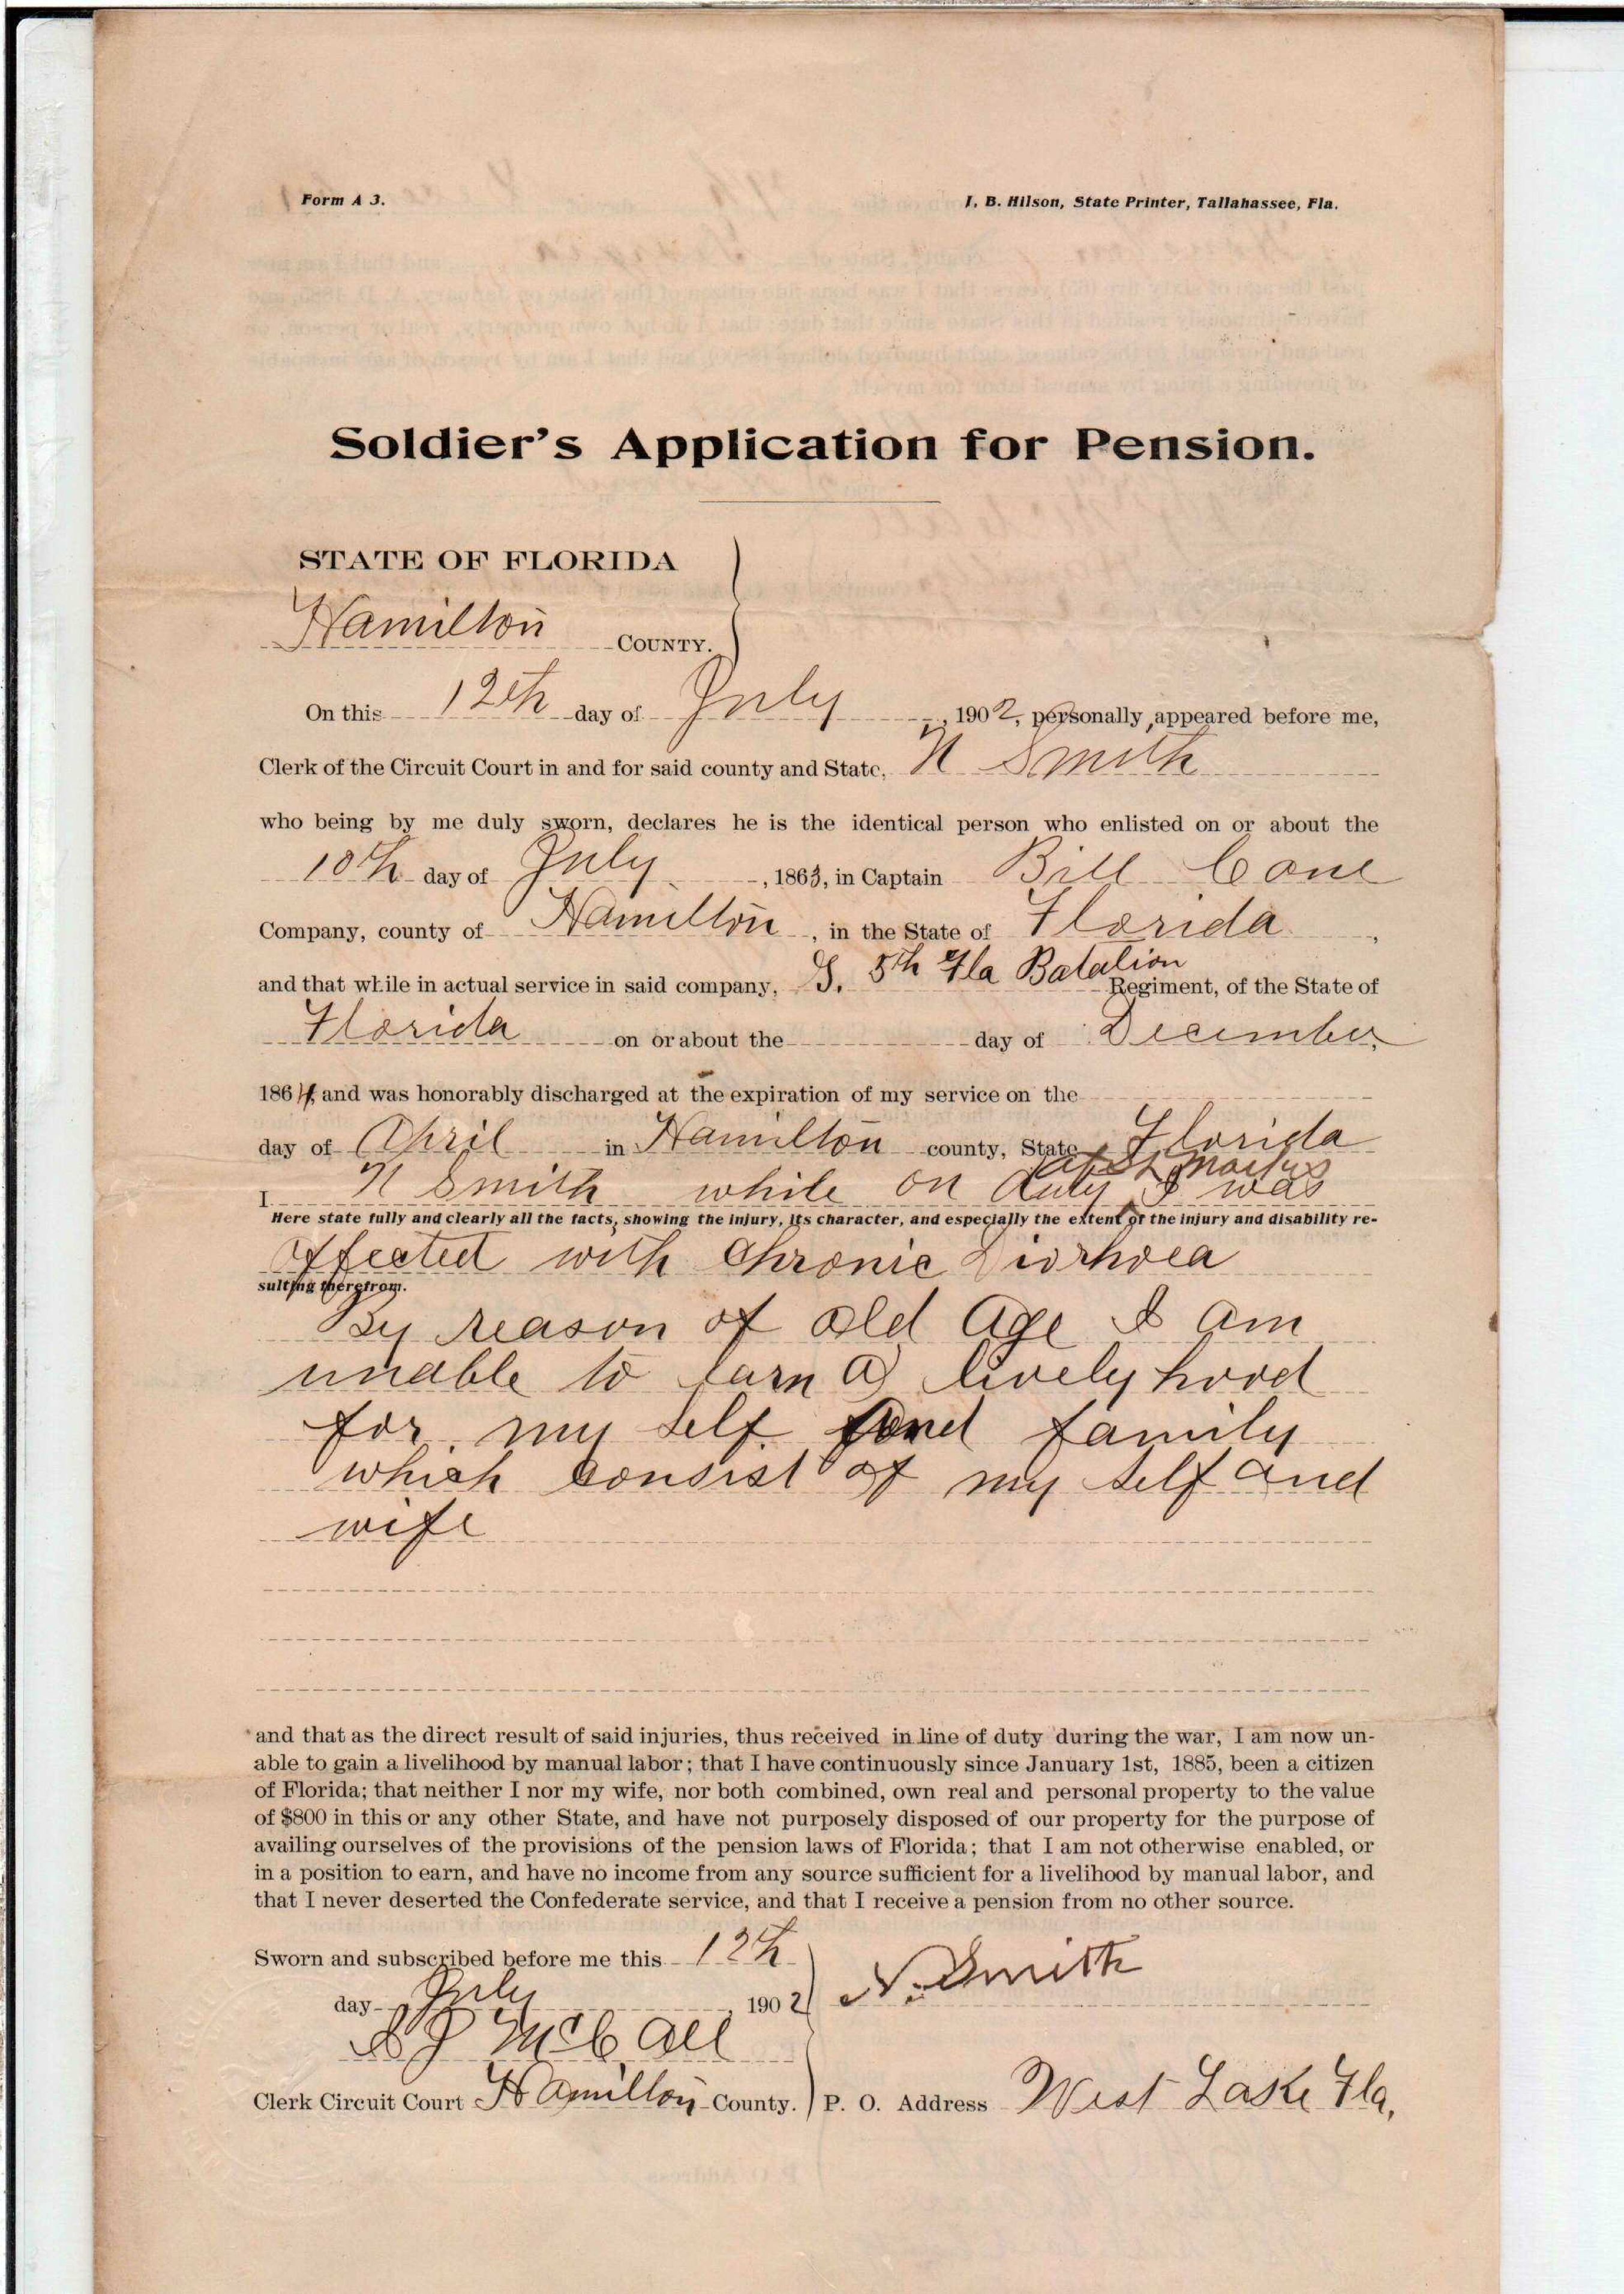 Form A 3. I. B. Hilson, State Printer, Tallahassee, Fla.
Soldier's Application for Pension.
STATE OF FLORIDA
Hamilton COUNTY.
On this 12th day of July, 1902, personally appeared before me,
Clerk of the Circuit Court in and for said county and State, N Smith
who being by me duly sworn, declares he is the identical person who enlisted on or about the
10th day of July, 1863, in Captain Bill Cone
Company, county of Hamilton, in the State of Florida,
and that while in actual service in said company, G. 5th Fla Batalion Regiment, of the State of
Florida on or about the day of December,
1864, and was honorably discharged at the expiration of my service on the
day of April in Hamilton county, State Florida
at St Markes
I N Smith while on duty I was
Here state fully and clearly all the facts, showing the injury, its character, and especially the extent of the injury and disability re-
affected with Chronic Diorhoea
sulting therefrom.
By reason of old age I am
unable to earn a livelyhood
for my self and family
which consist of my self and
wife
and that as the direct result of said injuries, thus received in line of duty during the war, I am now un-
able to gain a livelihood by manual labor; that I have continuously since January 1st, 1885, been a citizen
of Florida; that neither I nor my wife, nor both combined, own real and personal property to the value
of $800 in this or any other State, and have not purposely disposed of our property for the purpose of
availing ourselves of the provisions of the pension laws of Florida; that I am not otherwise enabled, or
in a position to earn, and have no income from any source sufficient for a livelihood by manual labor, and
that I never deserted the Confederate service, and that I receive a pension from no other source.
Sworn and subscribed before me this 12th
day July, 1902 N. Smith
McCall
Clerk Circuit Court Hamilton County. P. O. Address West Lake Fla.